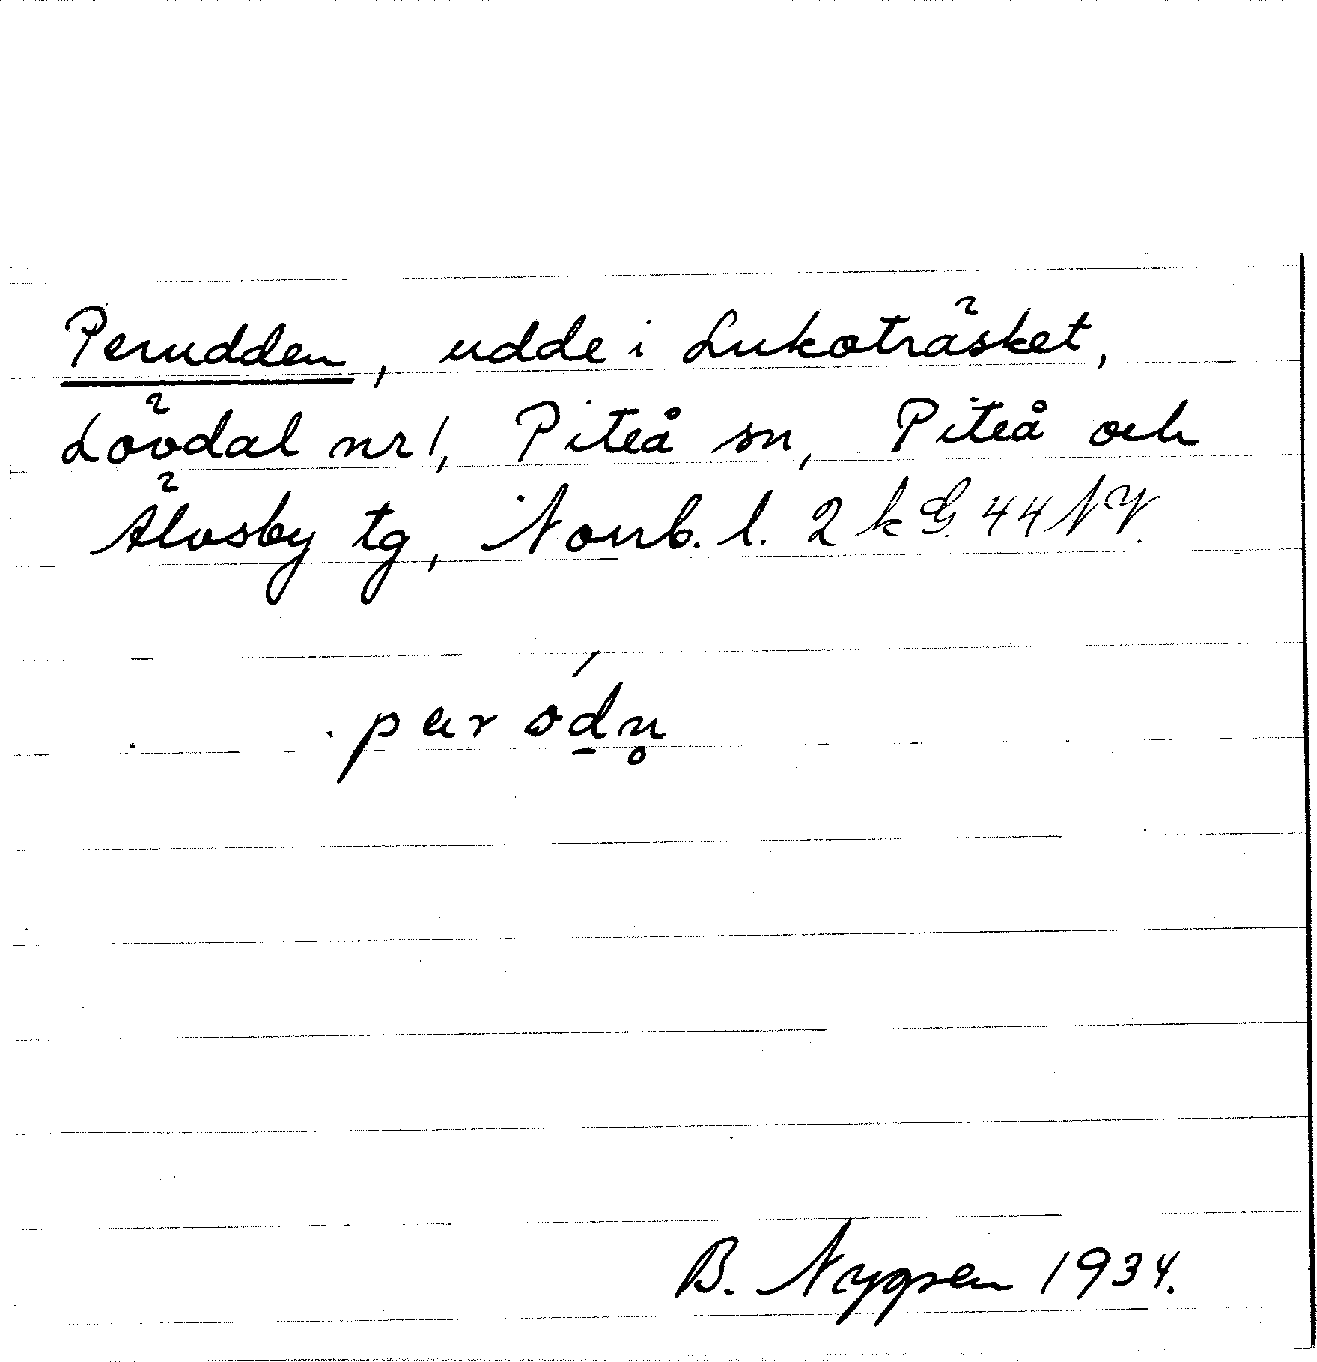 Perudden, udde i Lukoträsket,
Lövdal nr 1, Piteå sn, Piteå och
Älvsby tg, Norrb. l. 2 k G. 44 NV.
B. Nygren 1934.